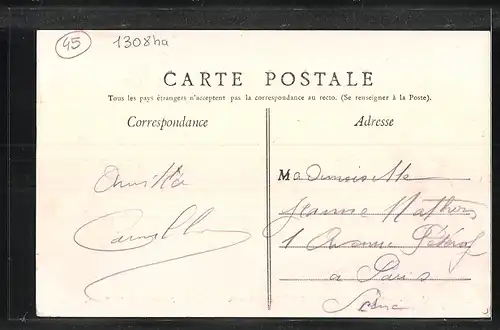 45
1308ha
CARTE POSTALE
Tous les pays étrangers n'acceptent pas la correspondance au recto. (Se renseigner à la Poste).
Correspondance
Adresse
Mademoiselle
Jeanne
1 Avenue
a Paris
Seine